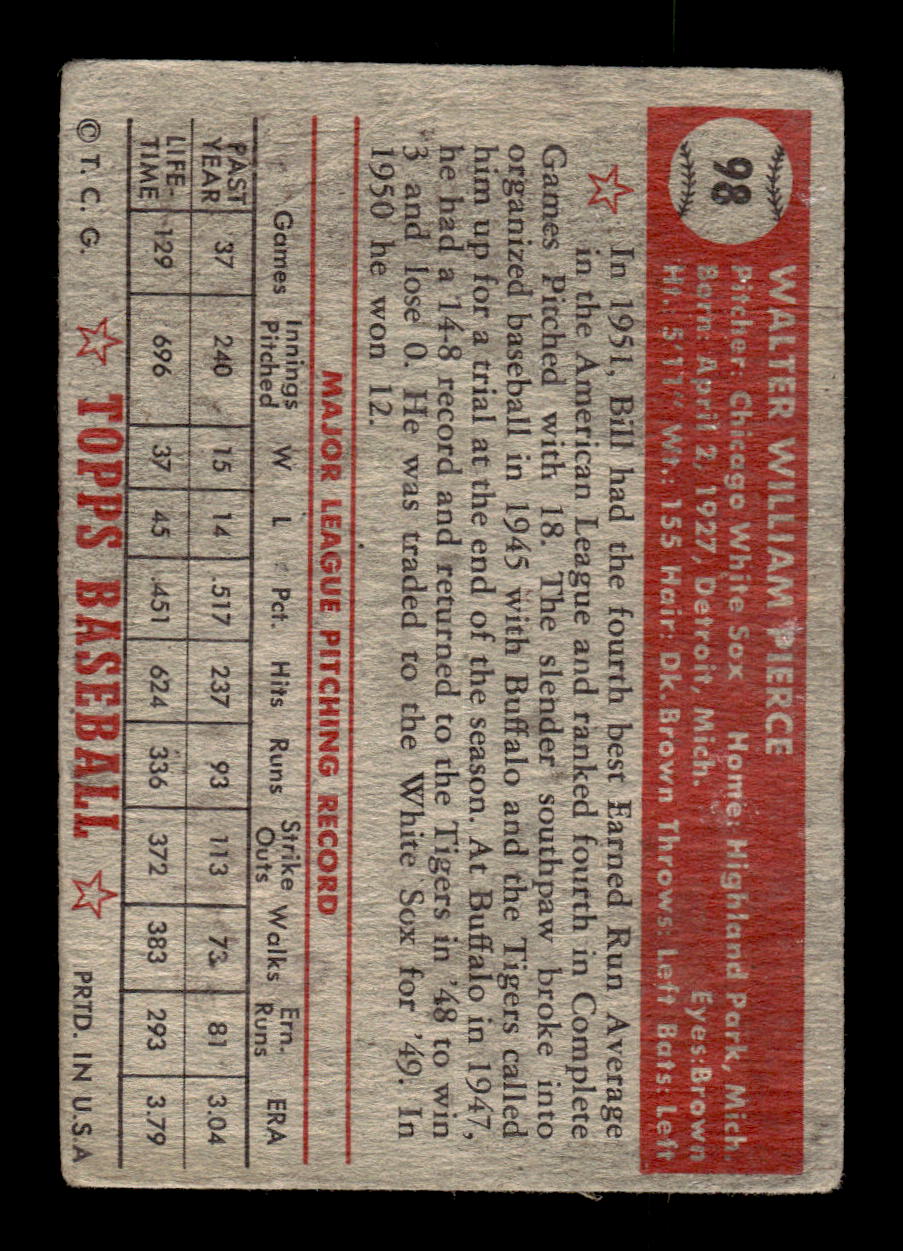 98
WALTER WILLIAM PIERCE
Pitcher: Chicago White Sox Home: Highland Park, Mich.
Born: April 2, 1927, Detroit, Mich. Eyes: Brown
Ht.: 5'11" Wt.: 155 Hair: Dk. Brown Throws: Left Bats: Left
In 1951, Bill had the fourth best Earned Run Average
in the American League and ranked fourth in Complete
Games Pitched with 18. The slender southpaw broke into
organized baseball in 1945 with Buffalo and the Tigers called
him up for a trial at the end of the season. At Buffalo in 1947,
he had a 14-8 record and returned to the Tigers in '48 to win
3 and lose 0. He was traded to the White Sox for '49. In
1950 he won 12.
MAJOR LEAGUE PITCHING RECORD
Games Innings Pitched W L Pct. Hits Runs Strike Outs Walks Ern. Runs ERA
PAST YEAR 37 240 15 14 .517 237 93 113 73 81 3.04
LIFE-TIME 129 696 37 45 .451 624 336 372 383 293 3.79
© T. C. G. TOPPS BASEBALL PRTD. IN U.S.A